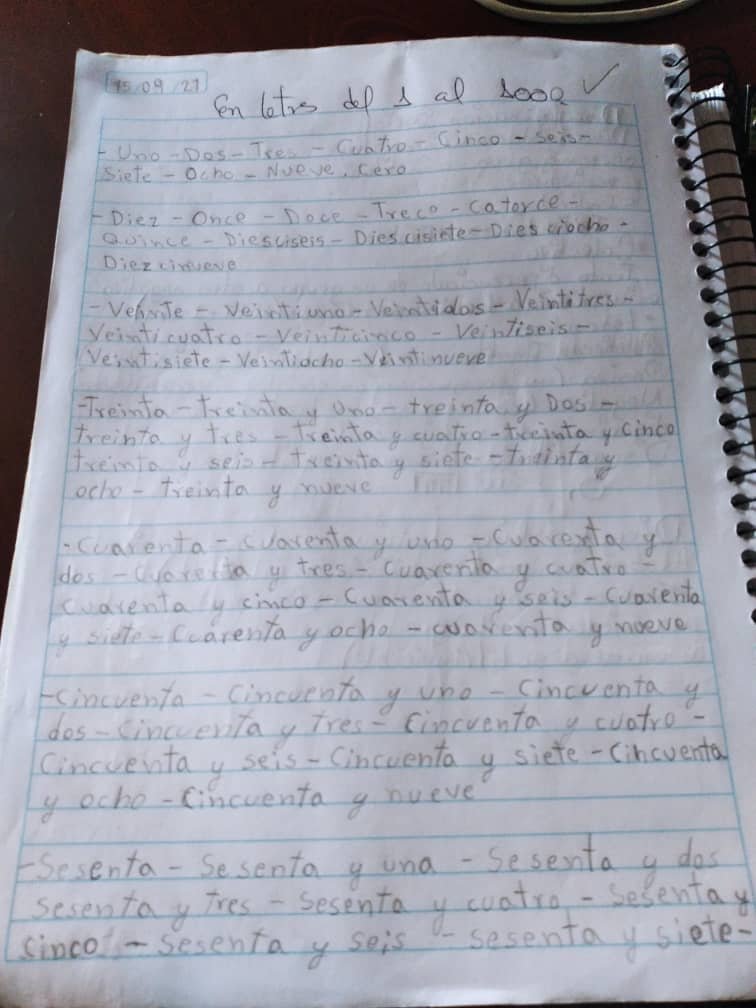 15/09/21
En letras del 1 al 1000
- Uno - Dos - Tres - Cuatro - Cinco - Seis -
Siete - Ocho - Nueve, Cero
- Diez - Once - Doce - Treco - Catorce -
Quince - Diesciseis - Dies cisiete - Dies ciocho -
Diez cinueve
- Veinte - Veintiuno - Veintidos - Veintitres -
Veinticuatro - Veinticinco - Veintiseis -
Veintisiete - Veintiocho - Veintinueve
- Treinta - treinta y Uno - treinta y Dos -
treinta y tres - treinta y cuatro - treinta y cinco
treinta y seis - treinta y siete - treinta y
ocho - treinta y nueve
- Cuarenta - cuarenta y uno - Cuarenta y
dos - Cuarenta y tres - Cuarenta y cuatro -
Cuarenta y cinco - Cuarenta y seis - Cuarenta
y siete - Cuarenta y ocho - cuarenta y nueve
- Cincuenta - Cincuenta y uno - Cincuenta y
dos - Cincuenta y tres - Cincuenta y cuatro -
Cincuenta y seis - Cincuenta y siete - Cincuenta
y ocho - Cincuenta y nueve
- Sesenta - Sesenta y una - Sesenta y dos
Sesenta y tres - Sesenta y cuatro - Sesenta y
cinco - Sesenta y seis - sesenta y siete -